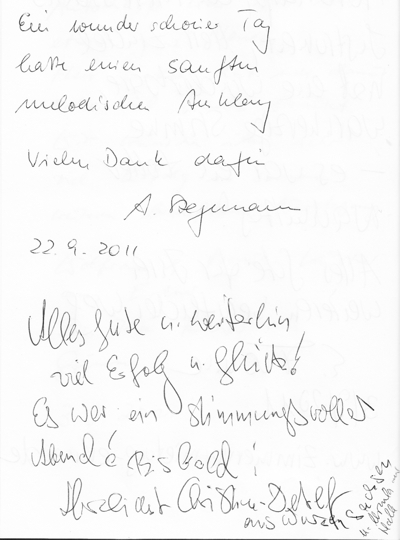 Ein wunderschöner Tag
hatte einen sanften
melodischen Anklang
Vielen Dank dafür
A. Stegemann
22.9.2011
Alles Gute u. weiterhin
viel Erfolg u. Glück!
Es war ein stimmungsvoller
Abend! Bis bald!
Herzlichst Christine + Detlef
aus Wurzen
Sachsen